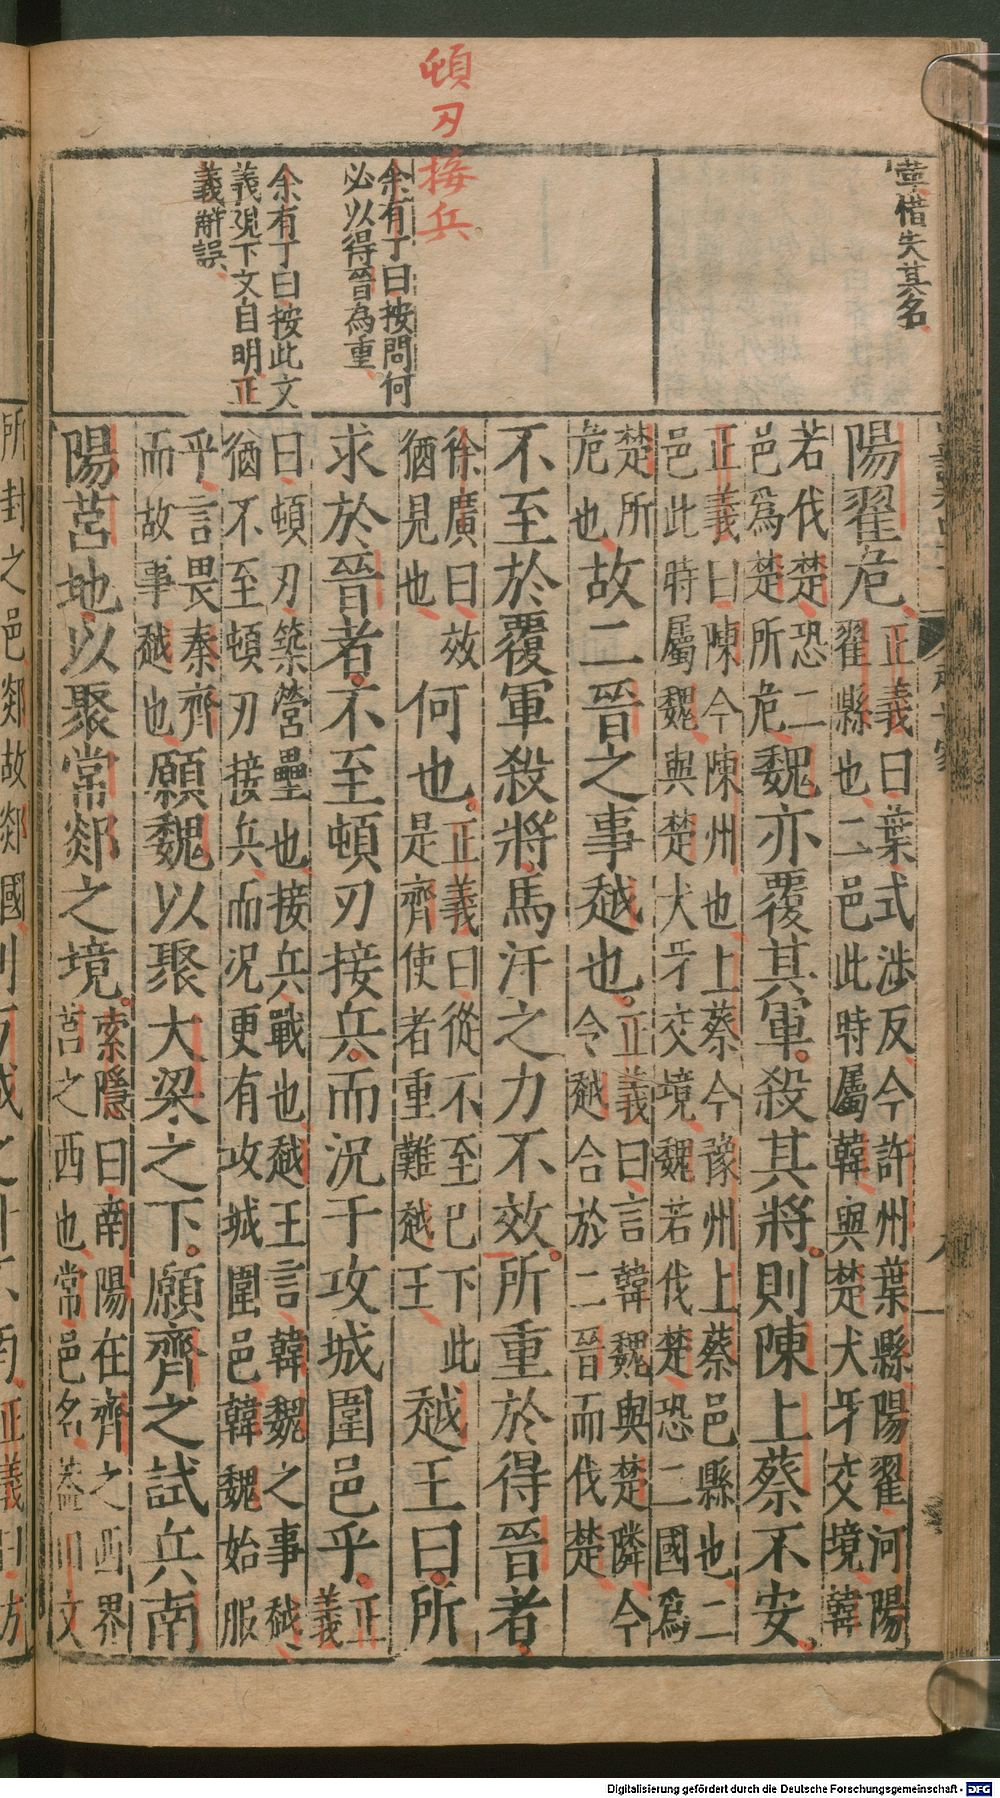 頓刃接兵
惜失其名
余有丁曰按問何
必以得晉為重
余有丁曰按此文
義觀下文自明正
義解誤
陽翟危
正義曰葉式涉反今許州葉縣陽翟河陽
翟縣也二邑此時屬韓與楚犬牙交境韓
若伐楚恐二
邑爲楚所危
魏亦覆其軍殺其將則陳上蔡不安
正義曰陳今陳州也上蔡今豫州上蔡邑縣也二
邑此時屬魏與楚犬牙交境魏若伐楚恐二國爲
楚所
危也
故二晉之事越也
正義曰言韓魏與楚隣今
令越合於二晉而伐楚
不至於覆軍殺將馬汗之力不效所重於得晉者
徐廣曰效
猶見也
何也
正義曰從不至已下此
是齊使者重難越王
越王曰所
求於晉者不至頓刃接兵而況于攻城圍邑乎
正
義
曰頓刃築營壘也接兵戰也越王言韓魏之事越
猶不至頓刃接兵而況更有攻城圍邑韓魏始服
乎言畏秦齊
而故事越也
願魏以聚大梁之下願齊之試兵南
陽莒地以聚常郯之境
索隱曰南陽在齊之西界
莒之西也常邑名蓋田文
所封之邑郯故郯國
正義曰方
Digitalisierung gefördert durch die Deutsche Forschungsgemeinschaft - DFG